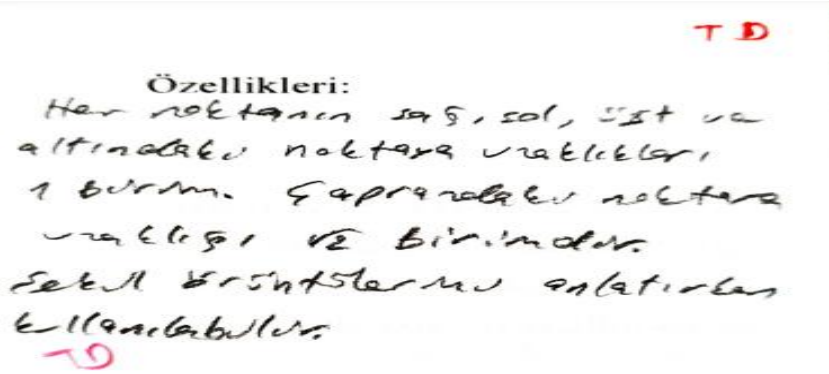 TD
Özellikleri:
Her noktanın sağ, sol, üst ve
altındaki noktaya uzaklıkları
1 birim. Çaprazdaki noktara
uzaklığı √2 birimdir.
Şekil örüntülerini anlatırken
kullanılabilir.
TD